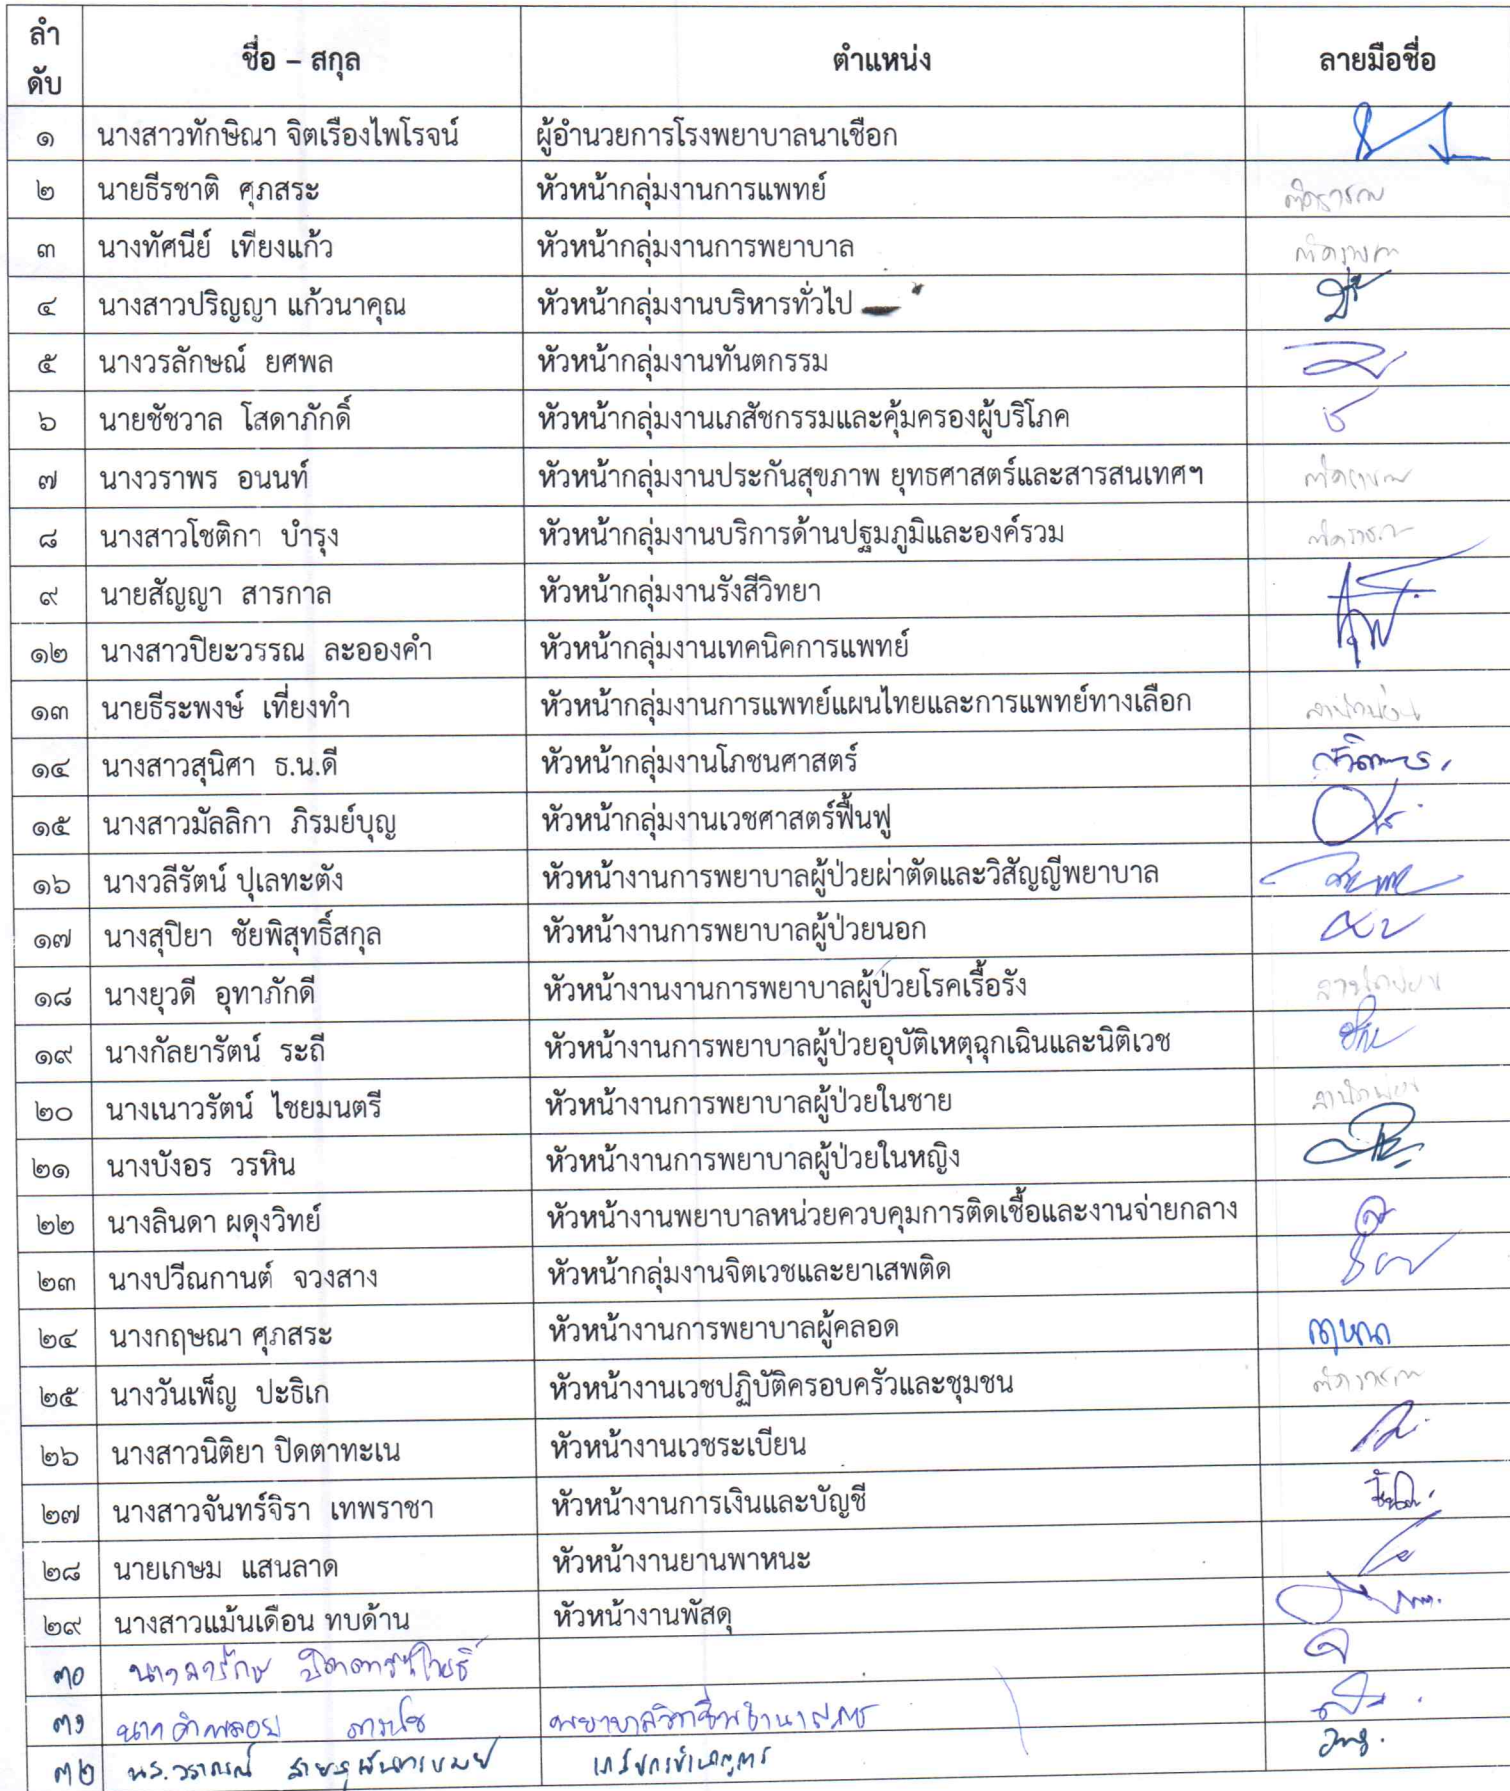 ลำดับ ชื่อ – สกุล ตำแหน่ง ลายมือชื่อ
๑ นางสาวทักษิณา จิตเรืองไพโรจน์ ผู้อำนวยการโรงพยาบาลนาเชือก
๒ นายธีรชาติ ศุภสระ หัวหน้ากลุ่มงานการแพทย์ ติดราชการ
๓ นางทัศนีย์ เทียงแก้ว หัวหน้ากลุ่มงานการพยาบาล ติดราชการ
๔ นางสาวปริญญา แก้วนาคุณ หัวหน้ากลุ่มงานบริหารทั่วไป
๕ นางวรลักษณ์ ยศพล หัวหน้ากลุ่มงานทันตกรรม
๖ นายชัชวาล โสดาภักดิ์ หัวหน้ากลุ่มงานเภสัชกรรมและคุ้มครองผู้บริโภค
๗ นางวราพร อนนท์ หัวหน้ากลุ่มงานประกันสุขภาพ ยุทธศาสตร์และสารสนเทศฯ ติดราชการ
๘ นางสาวโชติกา บำรุง หัวหน้ากลุ่มงานบริการด้านปฐมภูมิและองค์รวม ติดราชการ
๙ นายสัญญา สารกาล หัวหน้ากลุ่มงานรังสีวิทยา
๑๒ นางสาวปิยะวรรณ ละอองคำ หัวหน้ากลุ่มงานเทคนิคการแพทย์
๑๓ นายธีระพงษ์ เที่ยงทำ หัวหน้ากลุ่มงานการแพทย์แผนไทยและการแพทย์ทางเลือก ลาพักผ่อน
๑๔ นางสาวสุนิศา ธ.น.ดี หัวหน้ากลุ่มงานโภชนศาสตร์
๑๕ นางสาวมัลลิกา ภิรมย์บุญ หัวหน้ากลุ่มงานเวชศาสตร์ฟื้นฟู
๑๖ นางวลีรัตน์ ปุเลทะตัง หัวหน้างานการพยาบาลผู้ป่วยผ่าตัดและวิสัญญีพยาบาล
๑๗ นางสุปิยา ชัยพิสุทธิ์สกุล หัวหน้างานการพยาบาลผู้ป่วยนอก
๑๘ นางยุวดี อุทาภักดี หัวหน้างานงานการพยาบาลผู้ป่วยโรคเรื้อรัง ลาพักผ่อน
๑๙ นางกัลยารัตน์ ระถี หัวหน้างานการพยาบาลผู้ป่วยอุบัติเหตุฉุกเฉินและนิติเวช
๒๐ นางเนาวรัตน์ ไชยมนตรี หัวหน้างานการพยาบาลผู้ป่วยในชาย ลาพักผ่อน
๒๑ นางบังอร วรหิน หัวหน้างานการพยาบาลผู้ป่วยในหญิง
๒๒ นางลินดา ผดุงวิทย์ หัวหน้างานพยาบาลหน่วยควบคุมการติดเชื้อและงานจ่ายกลาง
๒๓ นางปวีณกานต์ จวงสาง หัวหน้ากลุ่มงานจิตเวชและยาเสพติด
๒๔ นางกฤษณา ศุภสระ หัวหน้างานการพยาบาลผู้คลอด กฤษณา
๒๕ นางวันเพ็ญ ปะธิเก หัวหน้างานเวชปฏิบัติครอบครัวและชุมชน ติดราชการ
๒๖ นางสาวนิติยา ปิดตาทะเน หัวหน้างานเวชระเบียน
๒๗ นางสาวจันทร์จิรา เทพราชา หัวหน้างานการเงินและบัญชี
๒๘ นายเกษม แสนลาด หัวหน้างานยานพาหนะ
๒๙ นางสาวแม้นเดือน ทบด้าน หัวหน้างานพัสดุ
๓๐
๓๑ พยาบาลวิชาชีพชำนาญการ
๓๒ น.ส. เภสัชกรชำนาญการ